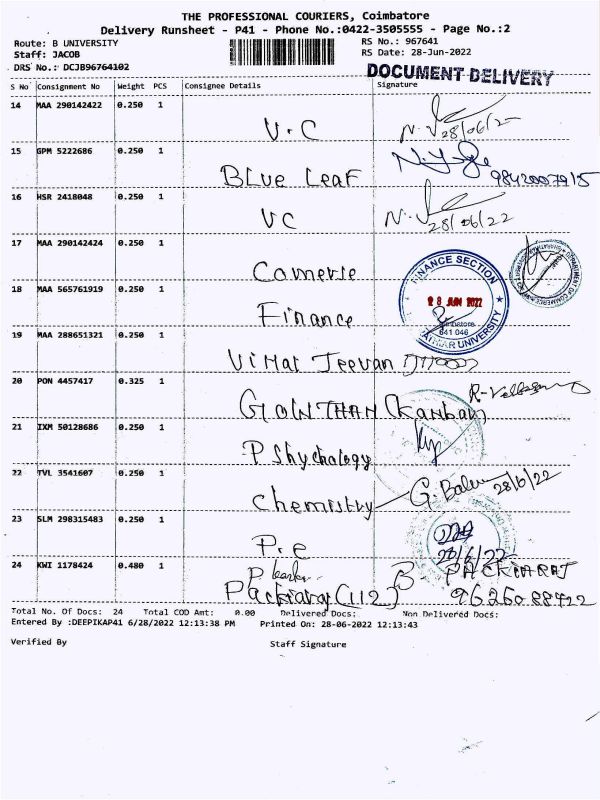 THE PROFESSIONAL COURIERS, Coimbatore
Delivery Runsheet - P41 - Phone No.:0422-3505555 - Page No.:2
Route: B UNIVERSITY RS No.: 967641
Staff: JACOB RS Date: 28-Jun-2022
DRS No.: DCJB96764102 DOCUMENT DELIVERY
S No Consignment No Weight PCS Consignee Details Signature
14 MAA 290142422 0.250 1
V.C 28/06/22
15 GPM 5222686 0.250 1
BLue Leaf 9842007915
16 HSR 2418048 0.250 1
VC 28/06/22
17 MAA 290142424 0.250 1
Comerie
DEPARTMENT OF COMMERCE
18 MAA 565761919 0.250 1
Finance
FINANCE SECTION
28 JUN 2022
Coimbatore
641 046
UNIVERSITY
19 MAA 288651321 0.250 1
Vimal Jeevan
20 PON 4457417 0.325 1
GOWTHAN (Kanban)
21 IXM 50128686 0.250 1
Pshychology
22 TVL 3541607 0.250 1
chemistry G. Balu 28/6/22
23 SLM 298315483 0.250 1
P.e 28/6/22
24 KWI 1178424 0.480 1
Packiaraj (112) PACKIARAJ
9626088422
Total No. Of Docs: 24 Total COD Amt: 0.00 Delivered Docs: Non Delivered Docs:
Entered By :DEEPIKAP41 6/28/2022 12:13:38 PM Printed On: 28-06-2022 12:13:43
Verified By Staff Signature